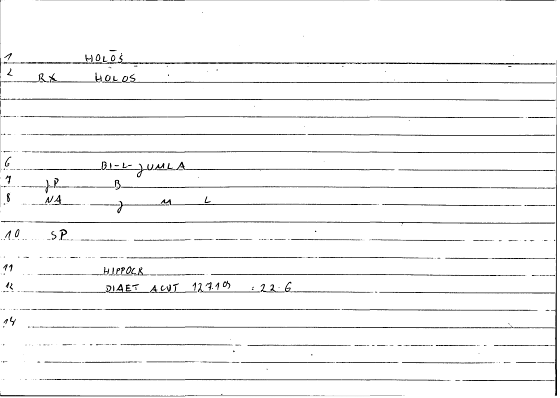 1 HOLŌS
2 RX HOLOS
6 BI-L-JUMLA
7 JP B
8 NA J M L
10 SP
11 HIPPOCR
12 DIAET ACUT 127.109 : 22.6
14